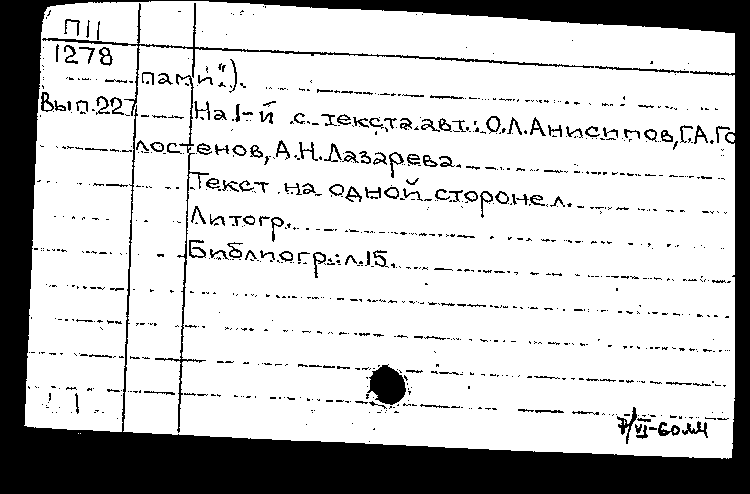 П11
1278
пами").
Вып.227 На 1-й с. текста авт.: О.Л.Анисимов, Г.А.Го
лостенов, А.Н.Лазарева.
Текст на одной стороне л.
Литогр.
Библиогр.: л.15.
7/VI-60